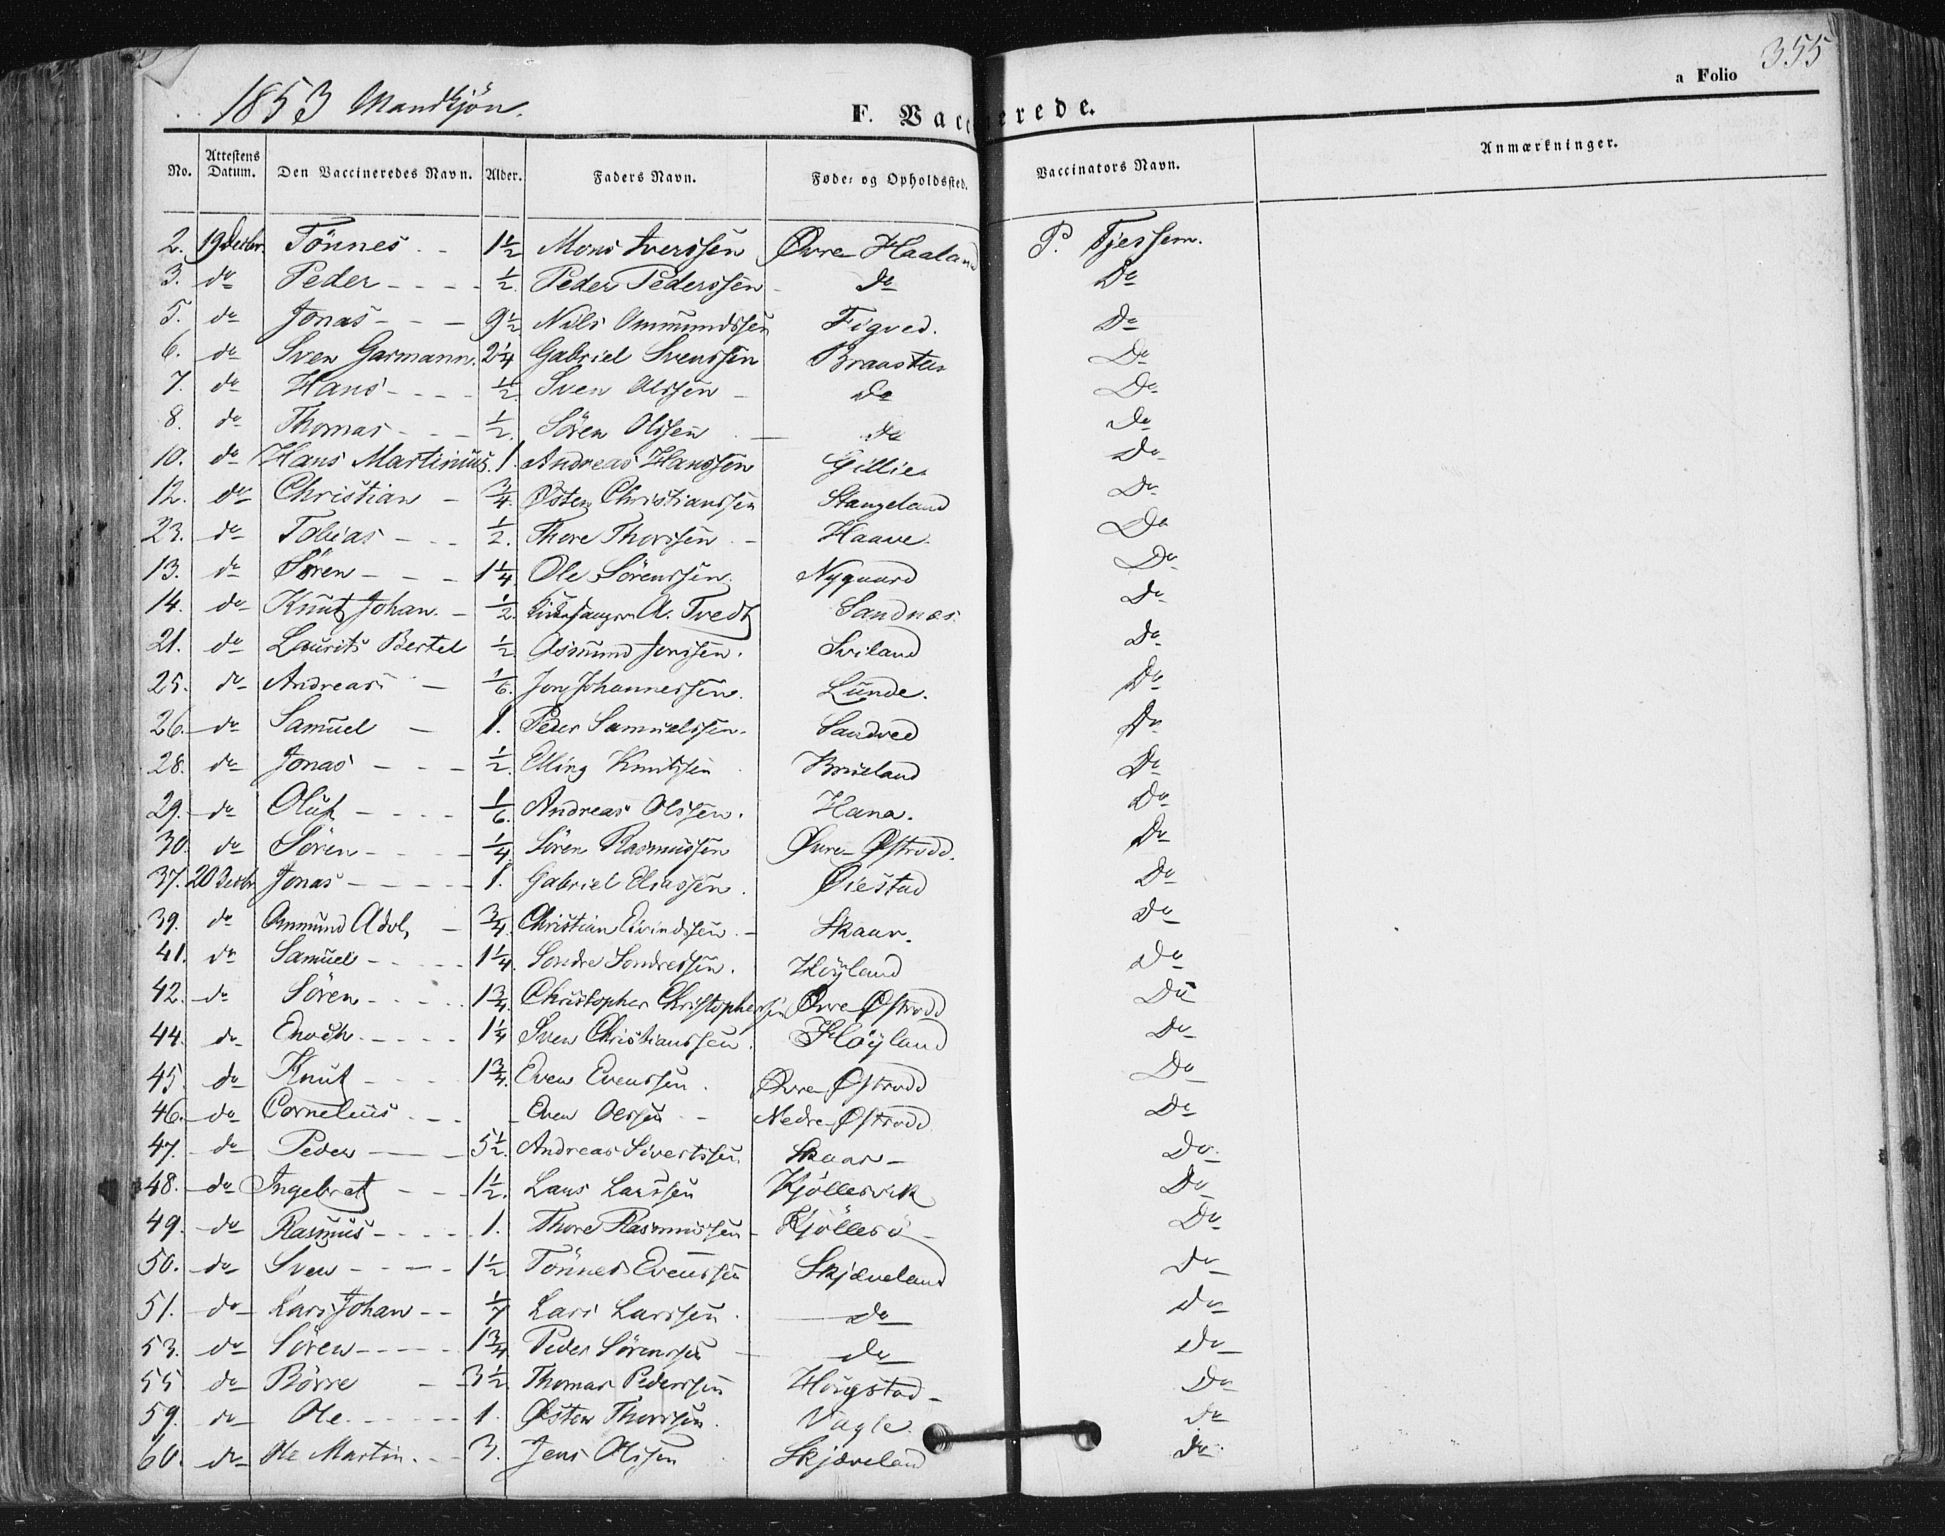 1853 Mandkjøn.
F. Vaccinerede.
a Folio 355
No. Attestens Datum. Den Vaccineredes Navn. Alder. Faders Navn. Føde- og Opholdssted. Vaccinators Navn. Anmærkninger.
2. 19 Decbr Tönnes 1 1/2 Mons Iverssen Øvre Haaland P. Tjessem.
3. do Peder 1/2 Peder Pederssen do Do
5. do Jonas 9 1/2 Nils Ommundssen Figved. Do
6. do Sven Garmann. 2 1/4 Gabriel Svenssen Braasten Do
7. do Hans 1/2 Sven Olssen Do Do
8. do Thomas 1/2. Sören Olssen do Do
10. do Hans Martinius. 1. Andreas Hanssen Gillie Do
12. do Christian 3/4. Østen Christianssen Stangeland Do
23. do Tobias 1/2. Thore Thorssen Haave. Do
13. do Sören 1 1/4. Ole Sörenssen. Nygaard Do
14. do Knut Johan 1/2. Kirkesanger A. Tvedt Sandnæs. Do
21. do Laurits Bertel 1/2 Asmund Jonssen. Sviland Do
25. do Andreas 1/6. Jon Johannessen. Lunde. Do
26. do Samuel 1. Peder Samuelssen. Sandved Do
28. do Jonas 1/2. Elling Knutssen Brueland Do
29. do Oluf 1/6. Andreas Olssen. Hana. Do
30. do Sören 1/4. Sören Rasmussen Øvre Østraad. Do
37. 20 Decbr Jonas 1. Gabriel Eliassen. Øiestad Do
39. do Ommund Adol, 3/4. Christian Eivindssen. Skaar. Do
41. do Samuel 1 1/4. Sondre Sondressen. Höyland Do
42. do Sören 1 3/4. Christopher Christophersen Øvre Østraad Do
44. do Enoch 1 1/4 Sven Christianssen. Höyland Do
45. do Knut 1 3/4. Even Evenssen. Øvre Østraad Do
46. do Cornelius Even Olssen Nedre Østraad Do
47. do Peder 5 1/2. Andreas Sivertssen Skaar Do
48. do Ingebret 1 1/2. Lars Larssen Kjöllesvik Do
49. do Rasmus 1. Thore Rasmussen Do
50. do Sven 1 1/2. Tönnes Evenssen Skjæveland Do
51. do Lars Johan 1/7 Lars Larssen. do Do
53. do Sören 1 3/4 Peder Sörenssen do Do
55 do Börre 3 1/2. Thomas Pederssen Höigstad Do
59. do Ole 1. Østen Thorssen. Vagle. do
60. do Ole Martin. 3. Jens Olssen Skjæveland do